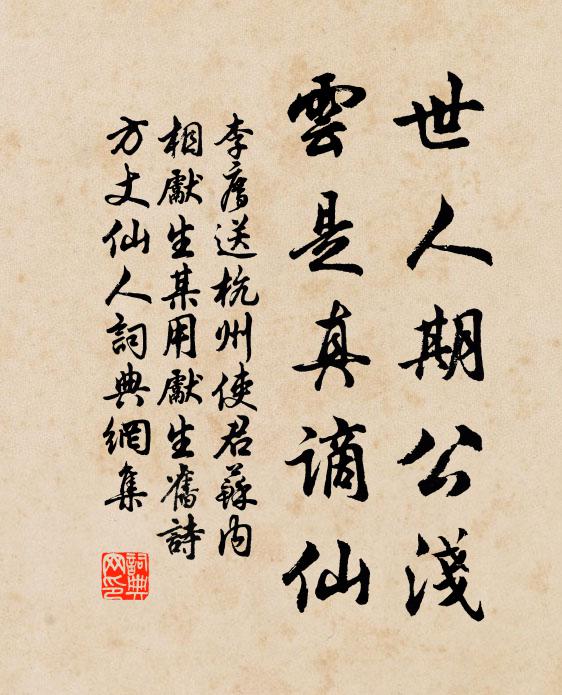 世人期公淺
雲是真謫仙
李廌送杭州使君蘇内
相獻生某用獻生舊詩
方丈仙人詞典網集
詞典网印